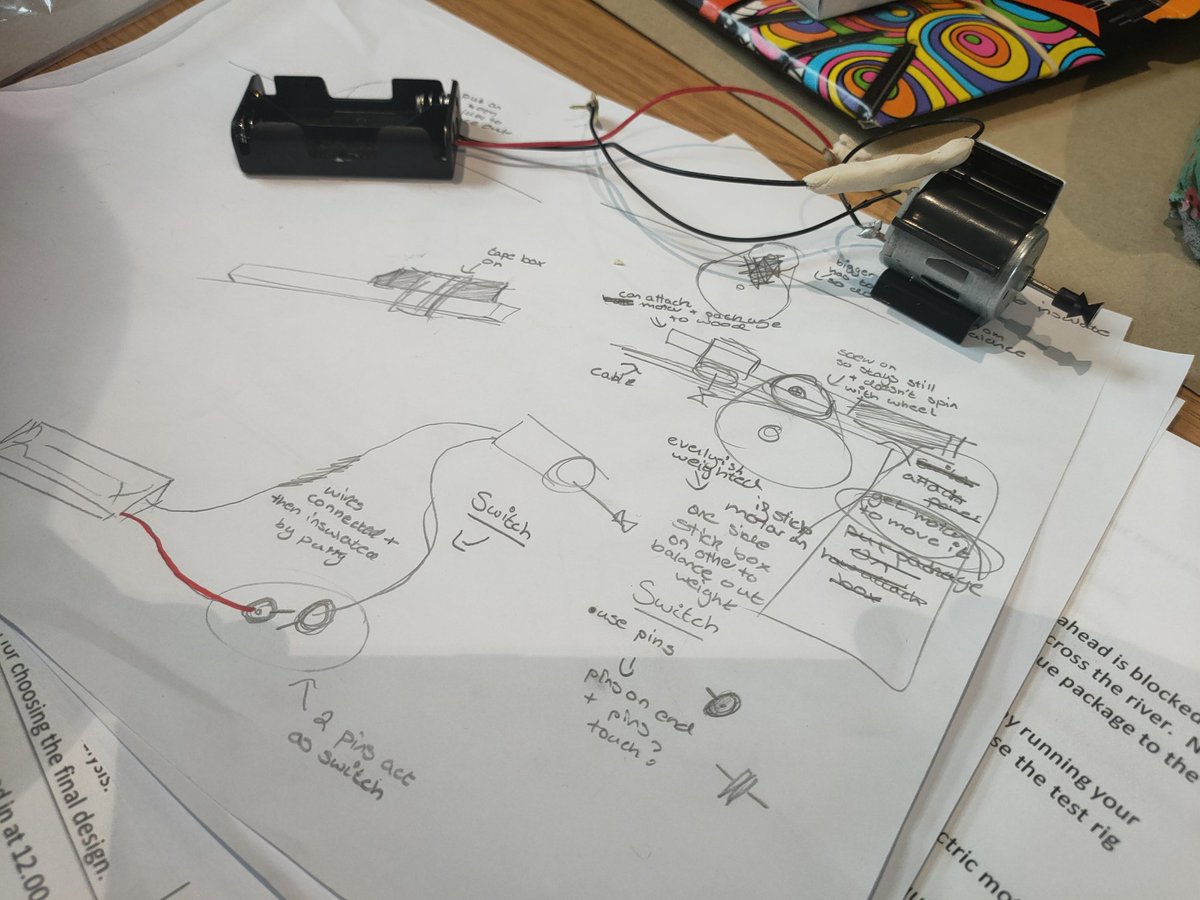 put on
tape box
on
can attach
motor + package
to wood
cable
bigger
has
screw on
so stays still
+ doesn't spin
with wheel
evenish
weighted
is stick
motor on
one side
stick box
on other to
balance out
weight
attach
power
get motor
to move it
put package
on
how attach
box
wires
connected +
then insulated
by putty
Switch
2 pins act
as switch
Switch
•use pins
pins on end
+ pins
touch?
ahead is blocked
cross the river. N
ue package to the
y running your
se the test rig
ctric mo
ysis.
our choosing the final design.
d in at 12.00